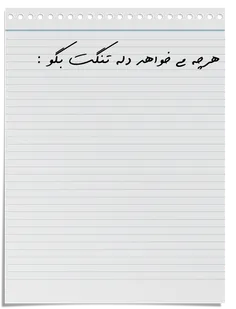 هرچه می خواهد دله تنگت بگو :